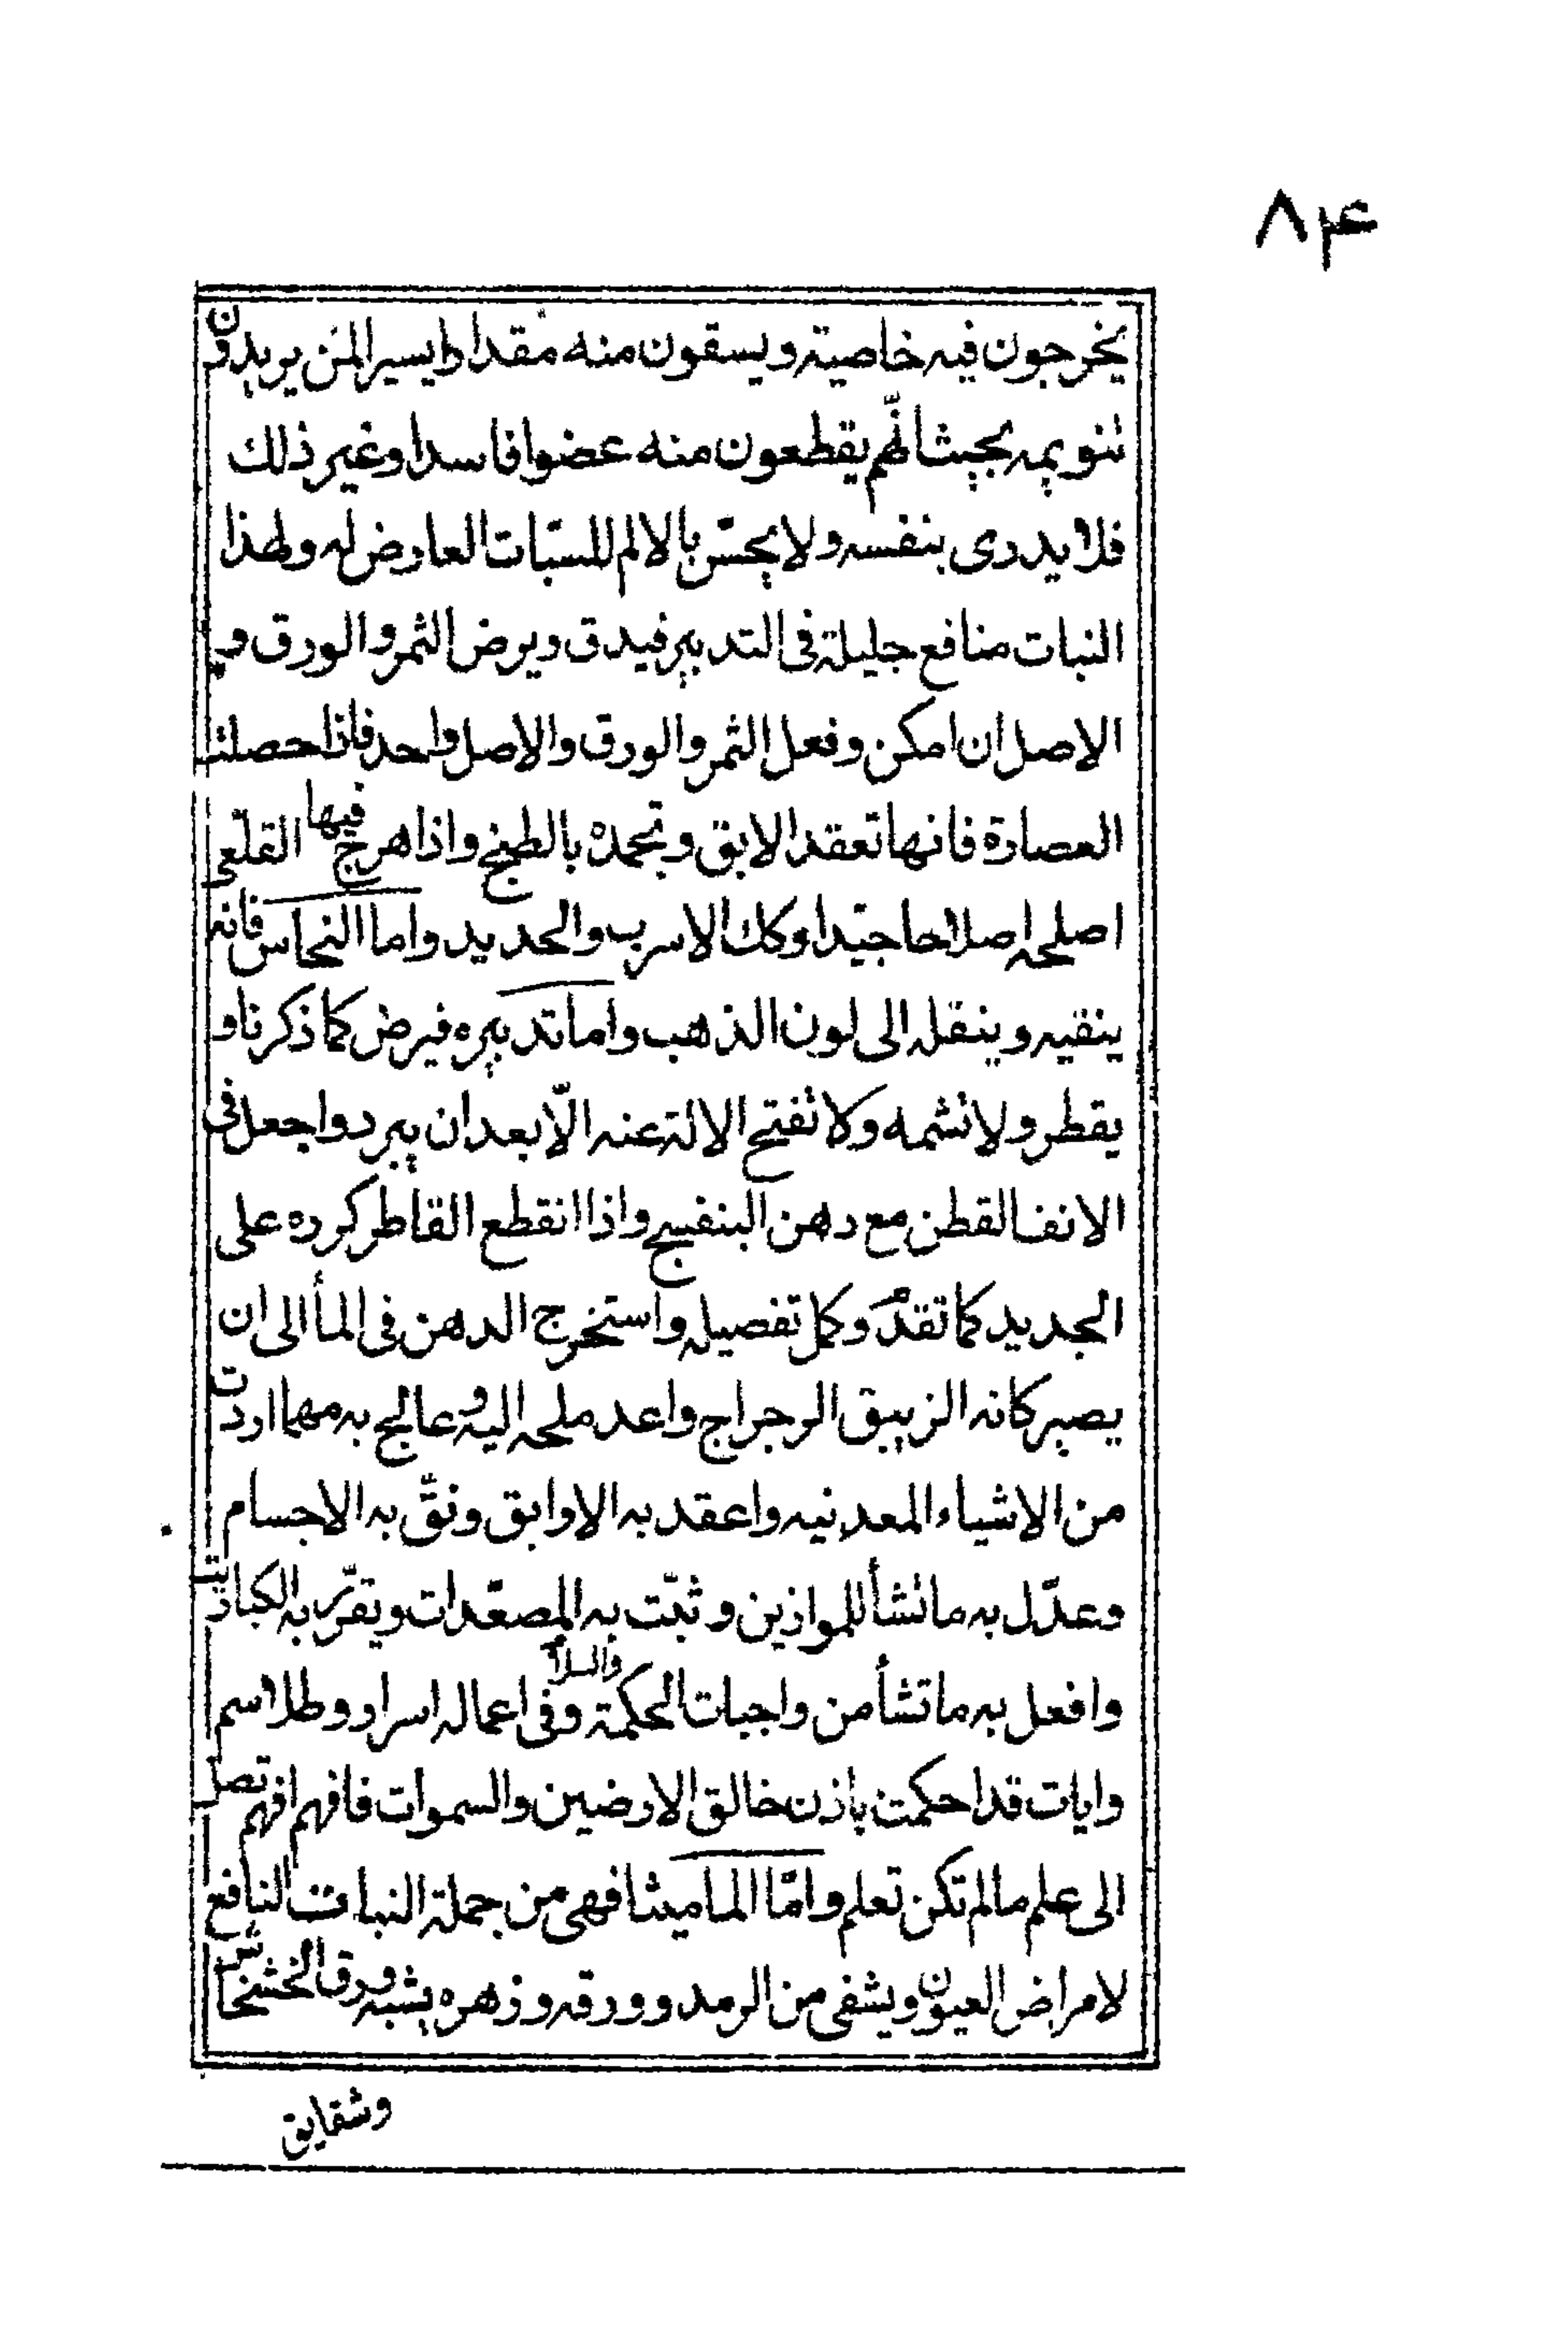 ۸۴
يخرجون فيه خاصية ويسقون منه مقدارا يسيرا لمن يريدون
تنويمه بحيث انّهم يقطعون منه عضوا فاسدا وغير ذلك
فلا يدرى بنفسه ولا يحسّ بالالم للسبات العارض له ولهذا
النبات منافع جليلة فى التدبير فيدق ويرض الثمر والورق و
الاصل ان امكن وفعل الثمر والورق والاصل واحد فاذا حصلت
العصارة فانها تعقد الابق وتجمده بالطبخ واذا هرج فيها القلعى
اصلحه اصلاحا جيّدا وكك الاسرب والحديد واما النحاس فانه
ينقيه وينقله الى لون الذهب واما تدبيره فيرض كما ذكرنا و
يقطر ولا تشمه ولا تفتح الالة عنه الّا بعد ان يبرد واجعل فى
الانف القطن مع دهن البنفسج واذا انقطع القاطر كرره على
الجديد كما تقدّم وكمل تفصيله واستخرج الدهن فى المأ الى ان
يصير كانه الزيبق الرجراج واعد ملحه اليه وعالج به مهما اردت
من الاشياء المعدنيه واعقد به الاوابق ونقّ به الاجسام
وعدّل به ما تشأ للموازين وثبّت به المصعّدات ويقرّ به الكباريت
وافعل به ما تشأ من واجبات الحكمة وفى اعماله اسرار وطلاسم
وايات قد احكمت باذن خالق الارضين والسموات فافهم افهم تصل
الى علم مالم تكن تعلم وامّا الماميثا فهى من جملة النبات النافع
لامراض العيون ويشفى من الرمد وورقه وزهره يشبه ورق الخشخاش
وشقايق